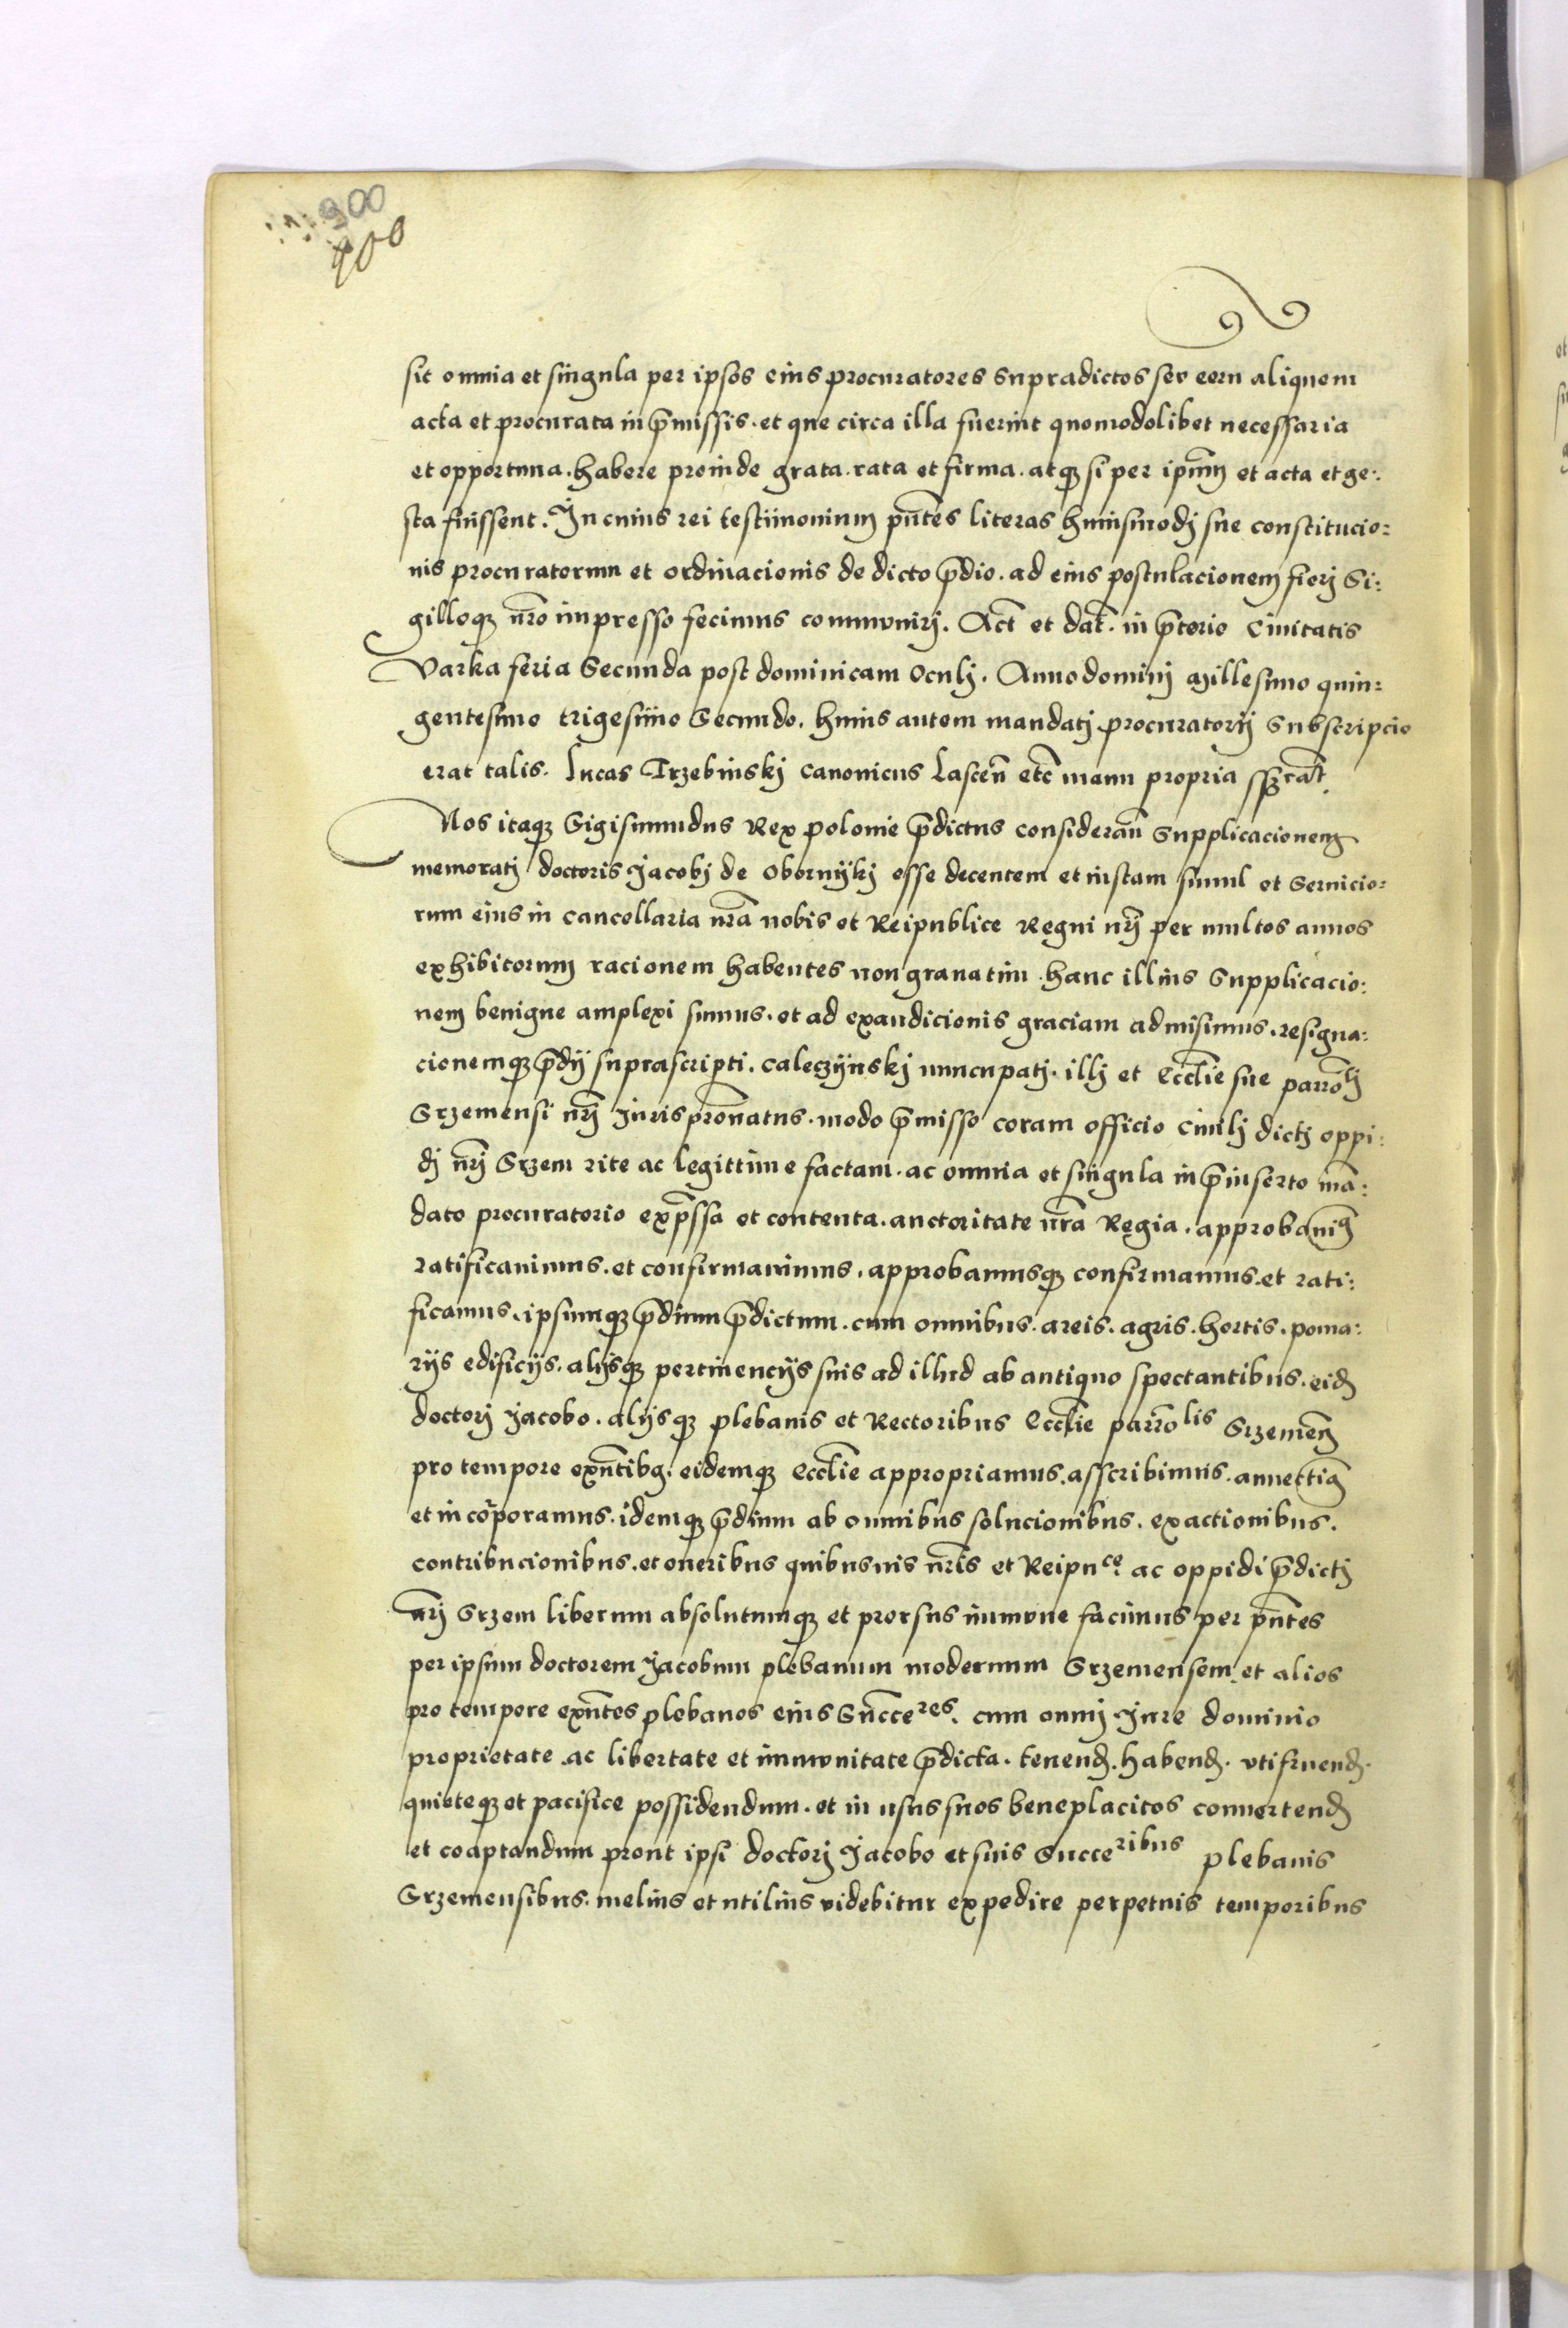 300
900
sit omnia et singula per ipsos eius procuratores supradictos seu eoru aliquem
acta et procurata in p̄missis. et que circa illa fuerint quomodolibet necessaria
et opportuna. habere proinde grata. rata et firma. atq3 si per ipm̄ et acta et ge:
sta fuissent. In cuius rei testimonium pn̄tes literas huiusmodj sue constitucio:
nis procuratorum et ordinacionis de dicto p̄dio. ad eius postulacionem fierj Si:
gilloq3 nr̄o impresso fecimus communirj. Act̄ et dat̄. in p̄torio Ciuitatis
Varka feria Secunda post dominicam Oculj. Anno dominj Millesimo quin:
gentesimo trigesimo Secundo. huius autem mandatj procuratorij Subscripcio
erat talis. Lucas Trzebinskj Canonicus Lascen̄ etc̄ manu propria
Nos itaq3 Sigismundus Rex Polonie p̄dictus consideran̄ Supplicacionem
memoratj doctoris Jacobj de Obornijkj esse decentem et iustam simul et Seruicio:
rum eius in Cancellaria nr̄a nobis et Reipublice Regni nr̄j per multos annos
exhibitorum racionem habentes non grauatim. hanc illius Supplicacio:
nem benigne amplexi sumus. et ad exaudicionis graciam admisimus. resigna:
cionemq3 p̄dij suprascripti. Caleczijnskj nuncupatj. illj et Eccl̄ie sue parrolj̄
Grzemensi nr̄j Juris pron̄atus. modo p̄misso coram officio Ciuilj dictj oppi:
dj nr̄j Grzem rite ac legittime factam. ac omnia et singula in p̄inserto mā:
dato procuratorio exp̄ssa et contenta. auctoritate nr̄a Regia. approbauim9
ratificauimus. et confirmauimus. approbamusq3 confirmamus. et rati:
ficamus. ipsumq3 p̄dium p̄dictum. cum omnibus. areis. agris. hortis. poma:
rijs edificijs. alijsq3 pertinencijs suis ad illud ab antiquo spectantibus. eid̄
doctorj Jacobo. alijsq3 plebanis et Rectoribus Eccl̄ie parrōlis Grzemen̄
pro tempore exn̄tib9. eidemq3 Eccl̄ie appropriamus. asscribimus. annectim9
et incorporamus. idemq3 p̄dium ab omnibus solucionibus. exactionibus.
contribucionibus. et oneribus quibusuis nr̄is et Reipuce. ac oppidi p̄dictj
nr̄j Grzem liberum absolutumq3 et prorsus immune facimus per pn̄tes
per ipsum doctorem Jacobum plebanum modernum Grzemensem. et alios
pro tempore exn̄tes plebanos eius Succeres. cum omnj Jure dominio
proprietate. ac libertate et immunitate p̄dicta. tenend̄. habend̄. vtifruend̄.
quieteq3 et pacifice possidendum. et in usus suos beneplacitos conuertend̄
et coaptandum prout ipsi doctorj Jacobo et suis Succeribus plebanis
Grzemensibus. melius et utilius videbitur expedire perpetuis temporibus